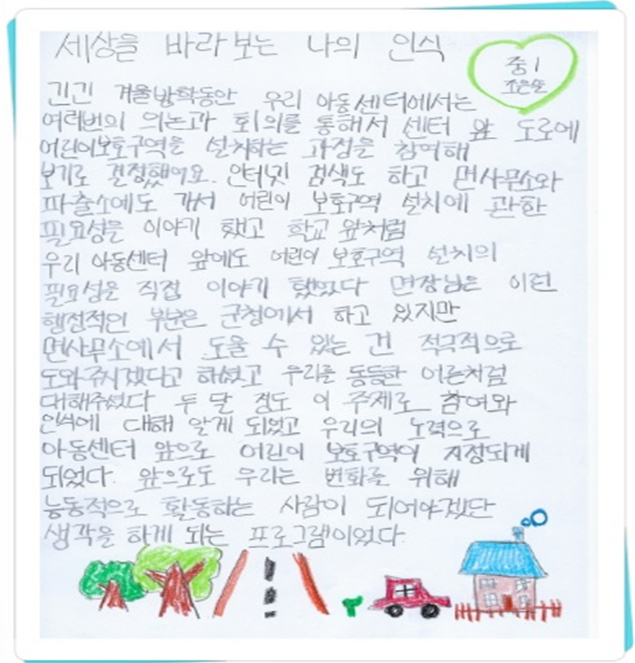 세상을 바라보는 나의 인식
중1
조은솔
긴긴 겨울방학동안 우리 아동센터에서는
여러번의 의논과 회의를 통해서 센터 앞 도로에
어린이보호구역을 설치하는 과정을 참여해
보기로 결정했어요. 인터넷 검색도 하고 면사무소와
파출소에도 가서 어린이 보호구역 설치에 관한
필요성을 이야기 했고 학교 앞처럼
우리 아동센터 앞에도 어린이 보호구역 설치의
필요성을 직접 이야기 했었다 면장님은 이런
행정적인 부분은 군청에서 하고 있지만
면사무소에서 도울 수 있는 건 적극적으로
도와주시겠다고 하셨고 우리를 동등한 어른처럼
대해주셨다 두 달 정도 이 주제로 참여와
인식에 대해 알게 되었고 우리의 노력으로
아동센터 앞으로 어린이 보호구역이 지정되게
되었다. 앞으로도 우리는 변화를 위해
능동적으로 활동하는 사람이 되어야겠단
생각을 하게 되는 프로그램이었다.